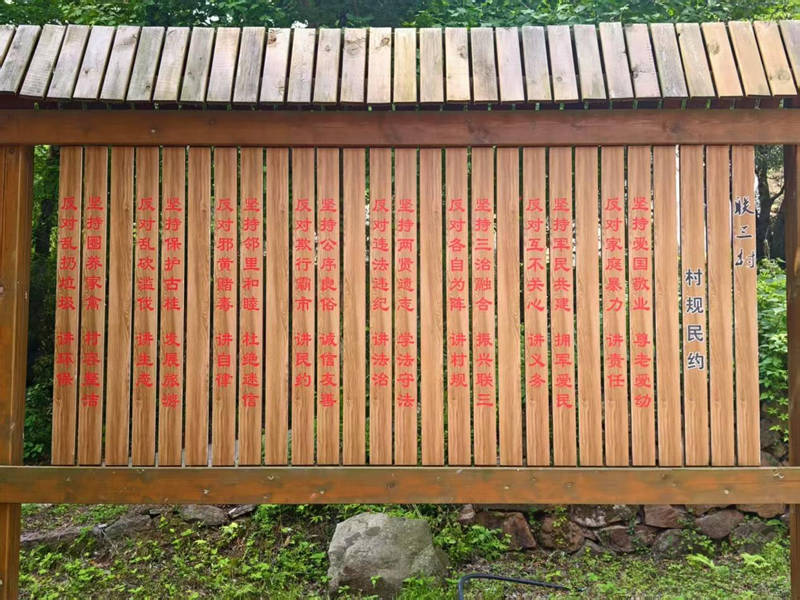 联三村
村规民约
坚持爱国敬业 尊老爱幼
反对家庭暴力 讲责任
坚持军民共建 拥军爱民
反对互不关心 讲义务
坚持三治融合 振兴联三
反对各自为阵 讲村规
坚持两贤遗志 学法守法
反对违法违纪 讲法治
坚持公序良俗 诚信友善
反对欺行霸市 讲民约
坚持邻里和睦 杜绝迷信
反对邪黄赌毒 讲自律
坚持保护古桂 发展旅游
反对乱砍滥伐 讲生态
坚持圈养家禽 村容整洁
反对乱扔垃圾 讲环保